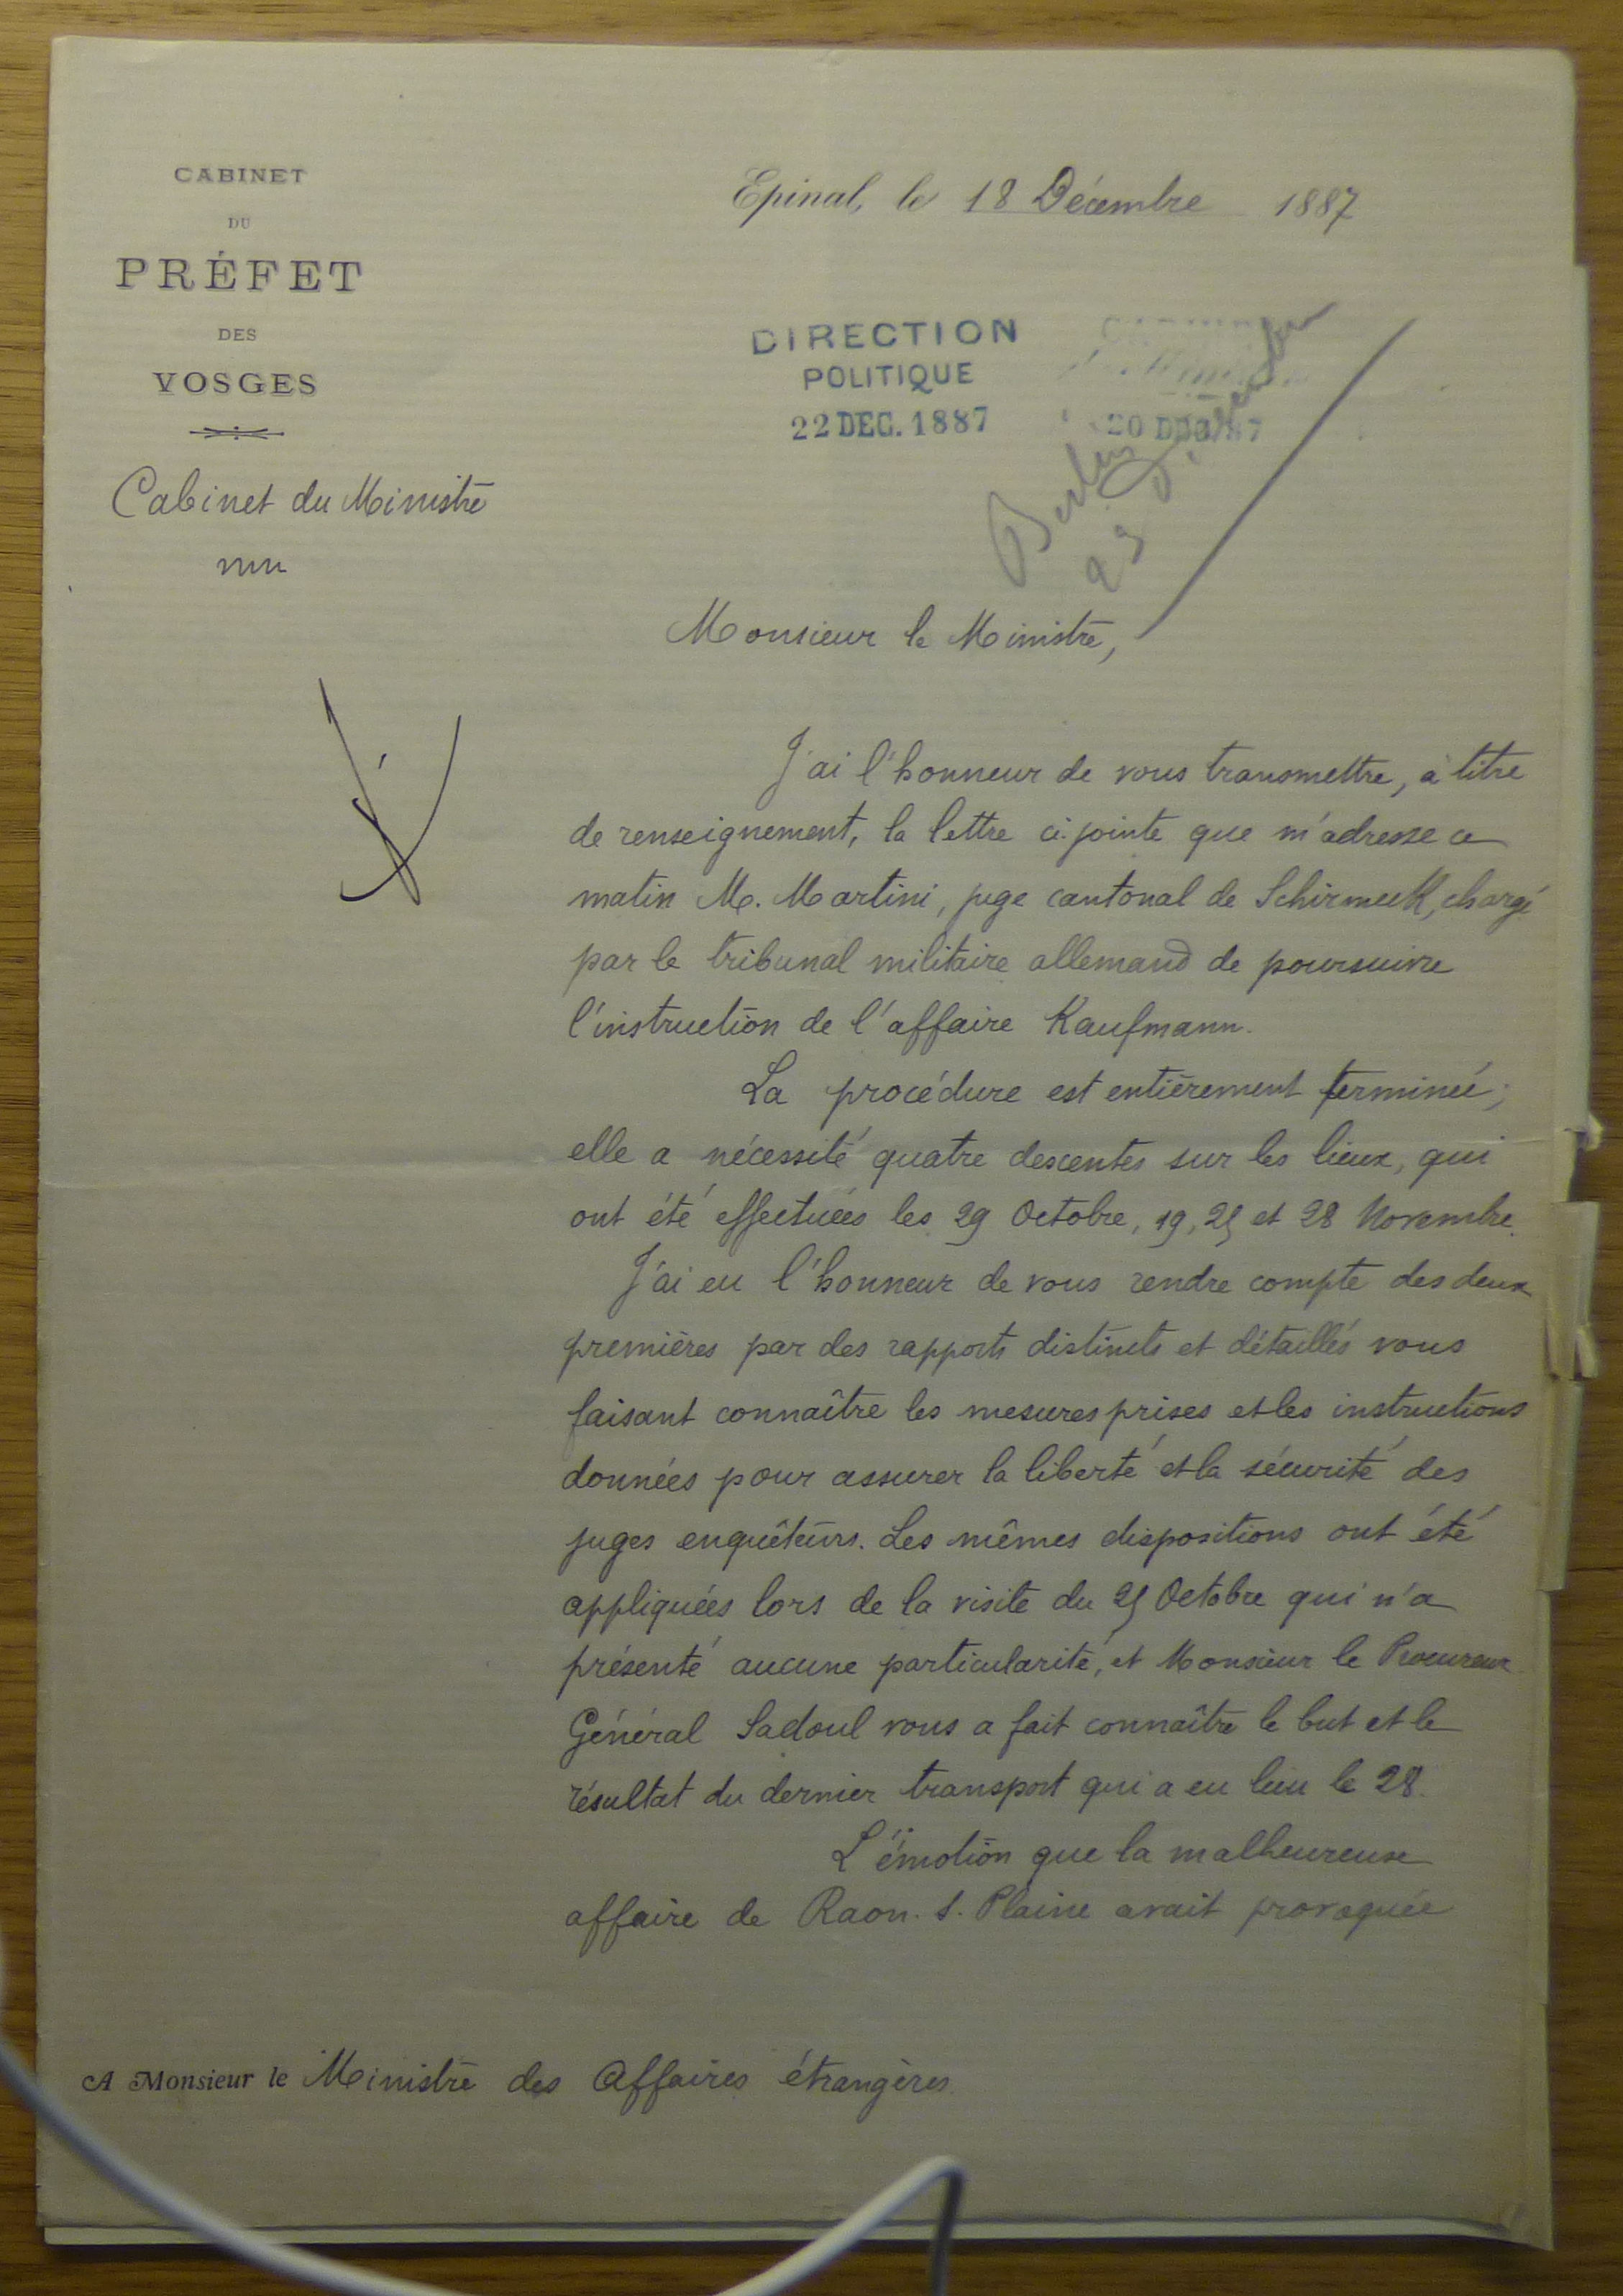 CABINET
DU
PRÉFET
DES
VOSGES
Cabinet du Ministre
Epinal, le 18 Décembre 1887
DIRECTION
POLITIQUE
22 DEC. 1887
20 DEC 87
Berlin
23 Décembre
Monsieur le Ministre,
J'ai l'honneur de vous transmettre, à titre
de renseignement, la lettre ci-jointe que m'adresse ce
matin M. Martini, juge cantonal de Schirmeck, chargé
par le tribunal militaire allemand de poursuivre
l'instruction de l'affaire Kaufmann.
La procédure est entièrement terminée;
elle a nécessité quatre descentes sur les lieux, qui
ont été effectuées les 29 Octobre, 19, 25 et 28 Novembre.
J'ai eu l'honneur de vous rendre compte des deux
premières par des rapports distincts et détaillés vous
faisant connaître les mesures prises et les instructions
données pour assurer la liberté et la sécurité des
juges enquêteurs. Les mêmes dispositions ont été
appliquées lors de la visite du 25 Octobre qui n'a
présenté aucune particularité, et Monsieur le Procureur
Général Sadoul vous a fait connaître le but et le
résultat du dernier transport qui a eu lieu le 28.
L'émotion que la malheureuse
affaire de Raon. s. Plaine avait provoquée
A Monsieur le Ministre des Affaires étrangères.